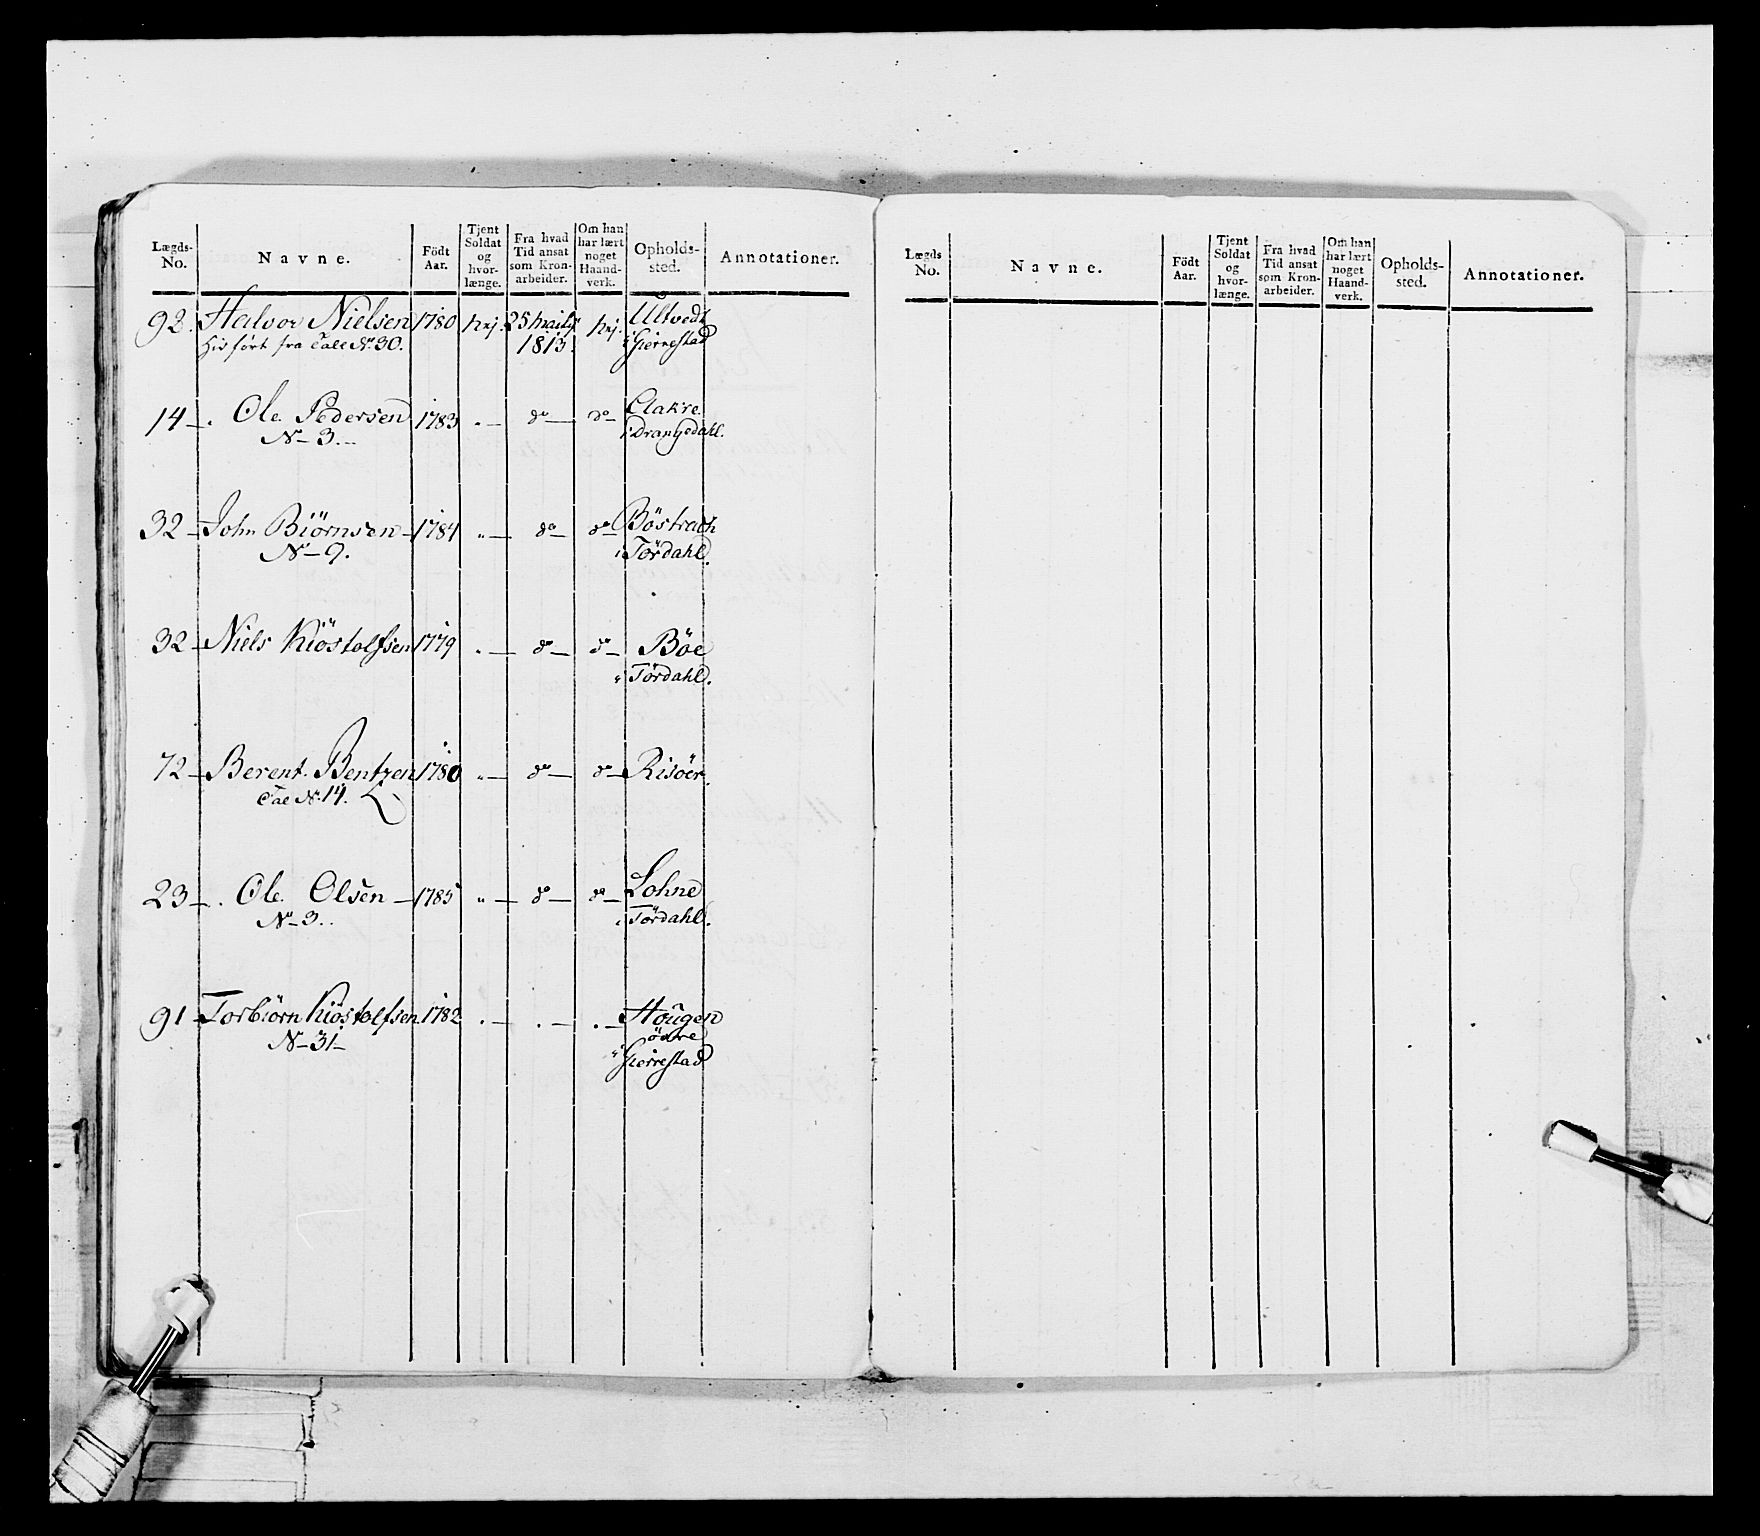 Lægds-No. Navne. Födt Aar. Tjent Soldat og hvor-længe. Fra hvad Tid ansat som Kron-arbeider. Om han har lært noget Haand-verk. Opholds-sted. Annotationer.
92. Halvor Nielsen 1780 nej. 25 1813. nej. Ultvedt
hid ført fra Cale No 30. i Gierrestad
14 – Ole Pedersen 1783 " – do – do – Clakre
No – 3. – i Drangedahl.
32 – John Biörnsen – 1784 " – do – do – Böstrach
No – 9. i Tördahl.
32 – Niels Kiöstolfsen 1779 " – do – do – Böe
" Tördahl.
72 – Berent Bentzen 1780 " – do – do – Risöer.
Cale No 14.
23 – Ole Olsen – 1785 " – do – do – Lohne
No – 3. i Tördahl.
91 – Torbiörn Kiöstolfsen 1782 " – " – " – Hougen
No – 31 – öwre
" Gierrestad
Lægds No. Navne. Födt Aar. Tjent Soldat og hvor-længe. Fra hvad Tid ansat som Kron-arbeider. Om han har lært noget Haand-verk. Opholds-sted. Annotationer.